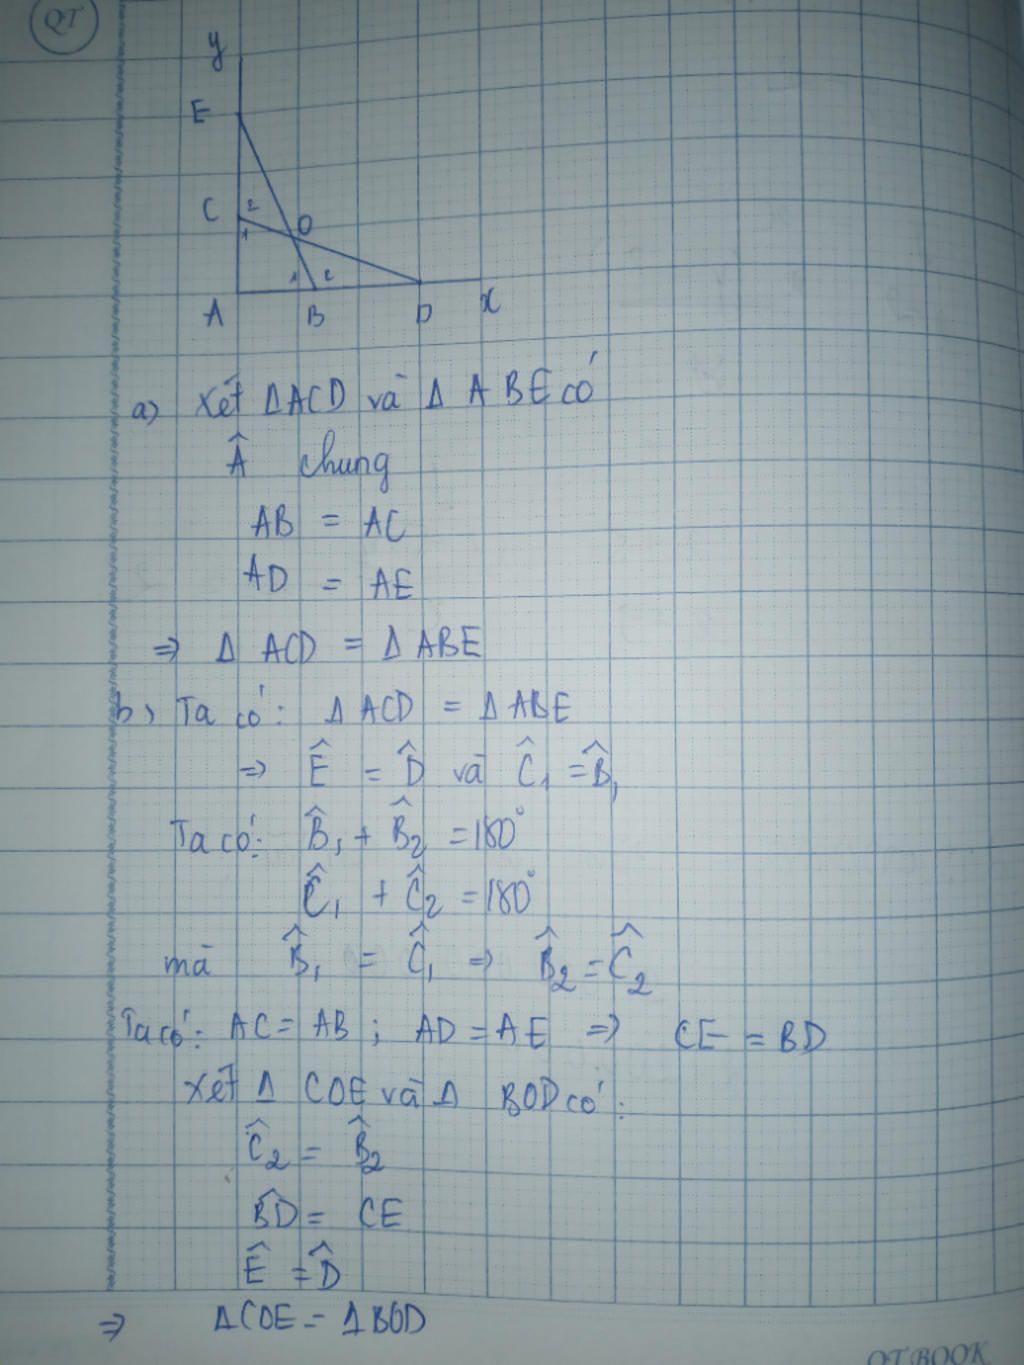 QT
y
E
C 2
O
1
1 2
A B D x
a) Xét ΔACD và Δ ABE có
Â chung
AB = AC
AD = AE
=> Δ ACD = Δ ABE
b) Ta có: Δ ACD = Δ ABE
=> Ê = D̂ và Ĉ₁ = B̂₁
Ta có: B̂₁ + B̂₂ = 180°
Ĉ₁ + Ĉ₂ = 180°
mà B̂₁ = Ĉ₁ => B̂₂ = Ĉ₂
Ta có: AC = AB ; AD = AE => CE = BD
Xét Δ COE và Δ BOD có:
Ĉ₂ = B̂₂
BD = CE
Ê = D̂
=> ΔCOE = ΔBOD
QT BOOK